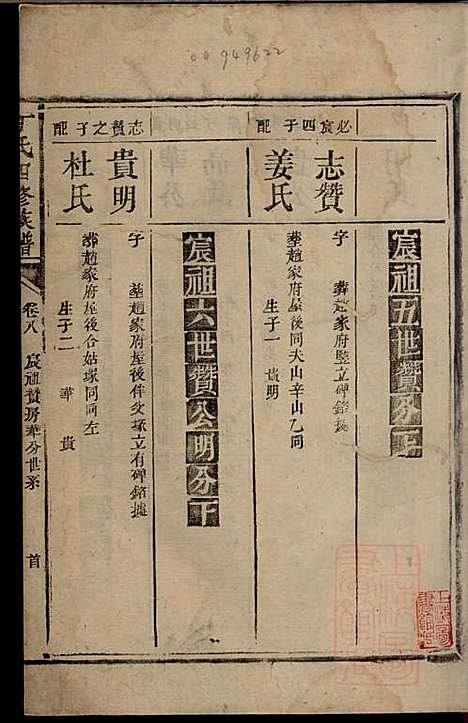 00949622
宸祖五世贊分上
必宸四子 配
志贊
姜氏
字 葬趙家府墅立碑銘據
塟趙家府屋後同夫山辛山乙向
生子一 貴明
宸祖六世贊公明分下
志贊之子 配
貴明
杜氏
字 塟趙家府屋後伴父塚立有碑銘據
葬趙家府屋後合姑塚同向左
生子二 華 貴
氏四修族譜
卷八 宸祖贊房華分世系 首